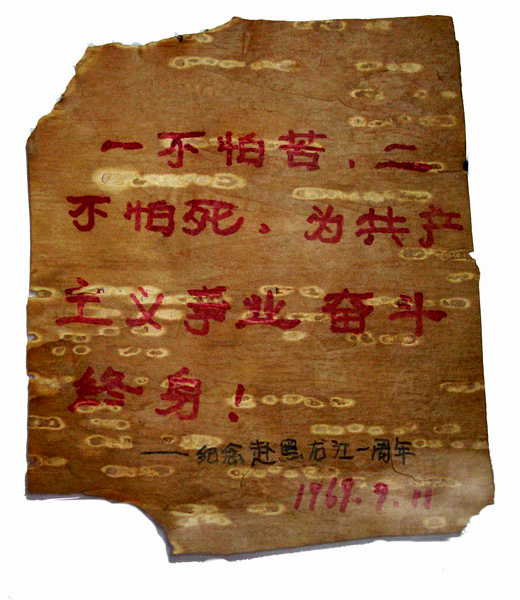 一不怕苦，二
不怕死，为共产
主义事业奋斗
终身！
——纪念赴黑龙江一周年
1969.9.11